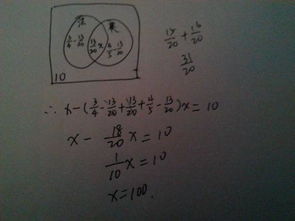 法 美
3/4-13/20 13/20 x 4/5-13/20
10
15/20+16/20
31/20
∴ x-(3/4-13/20+13/20+4/5-13/20)x=10
x-18/20x=10
1/10x=10
x=100.